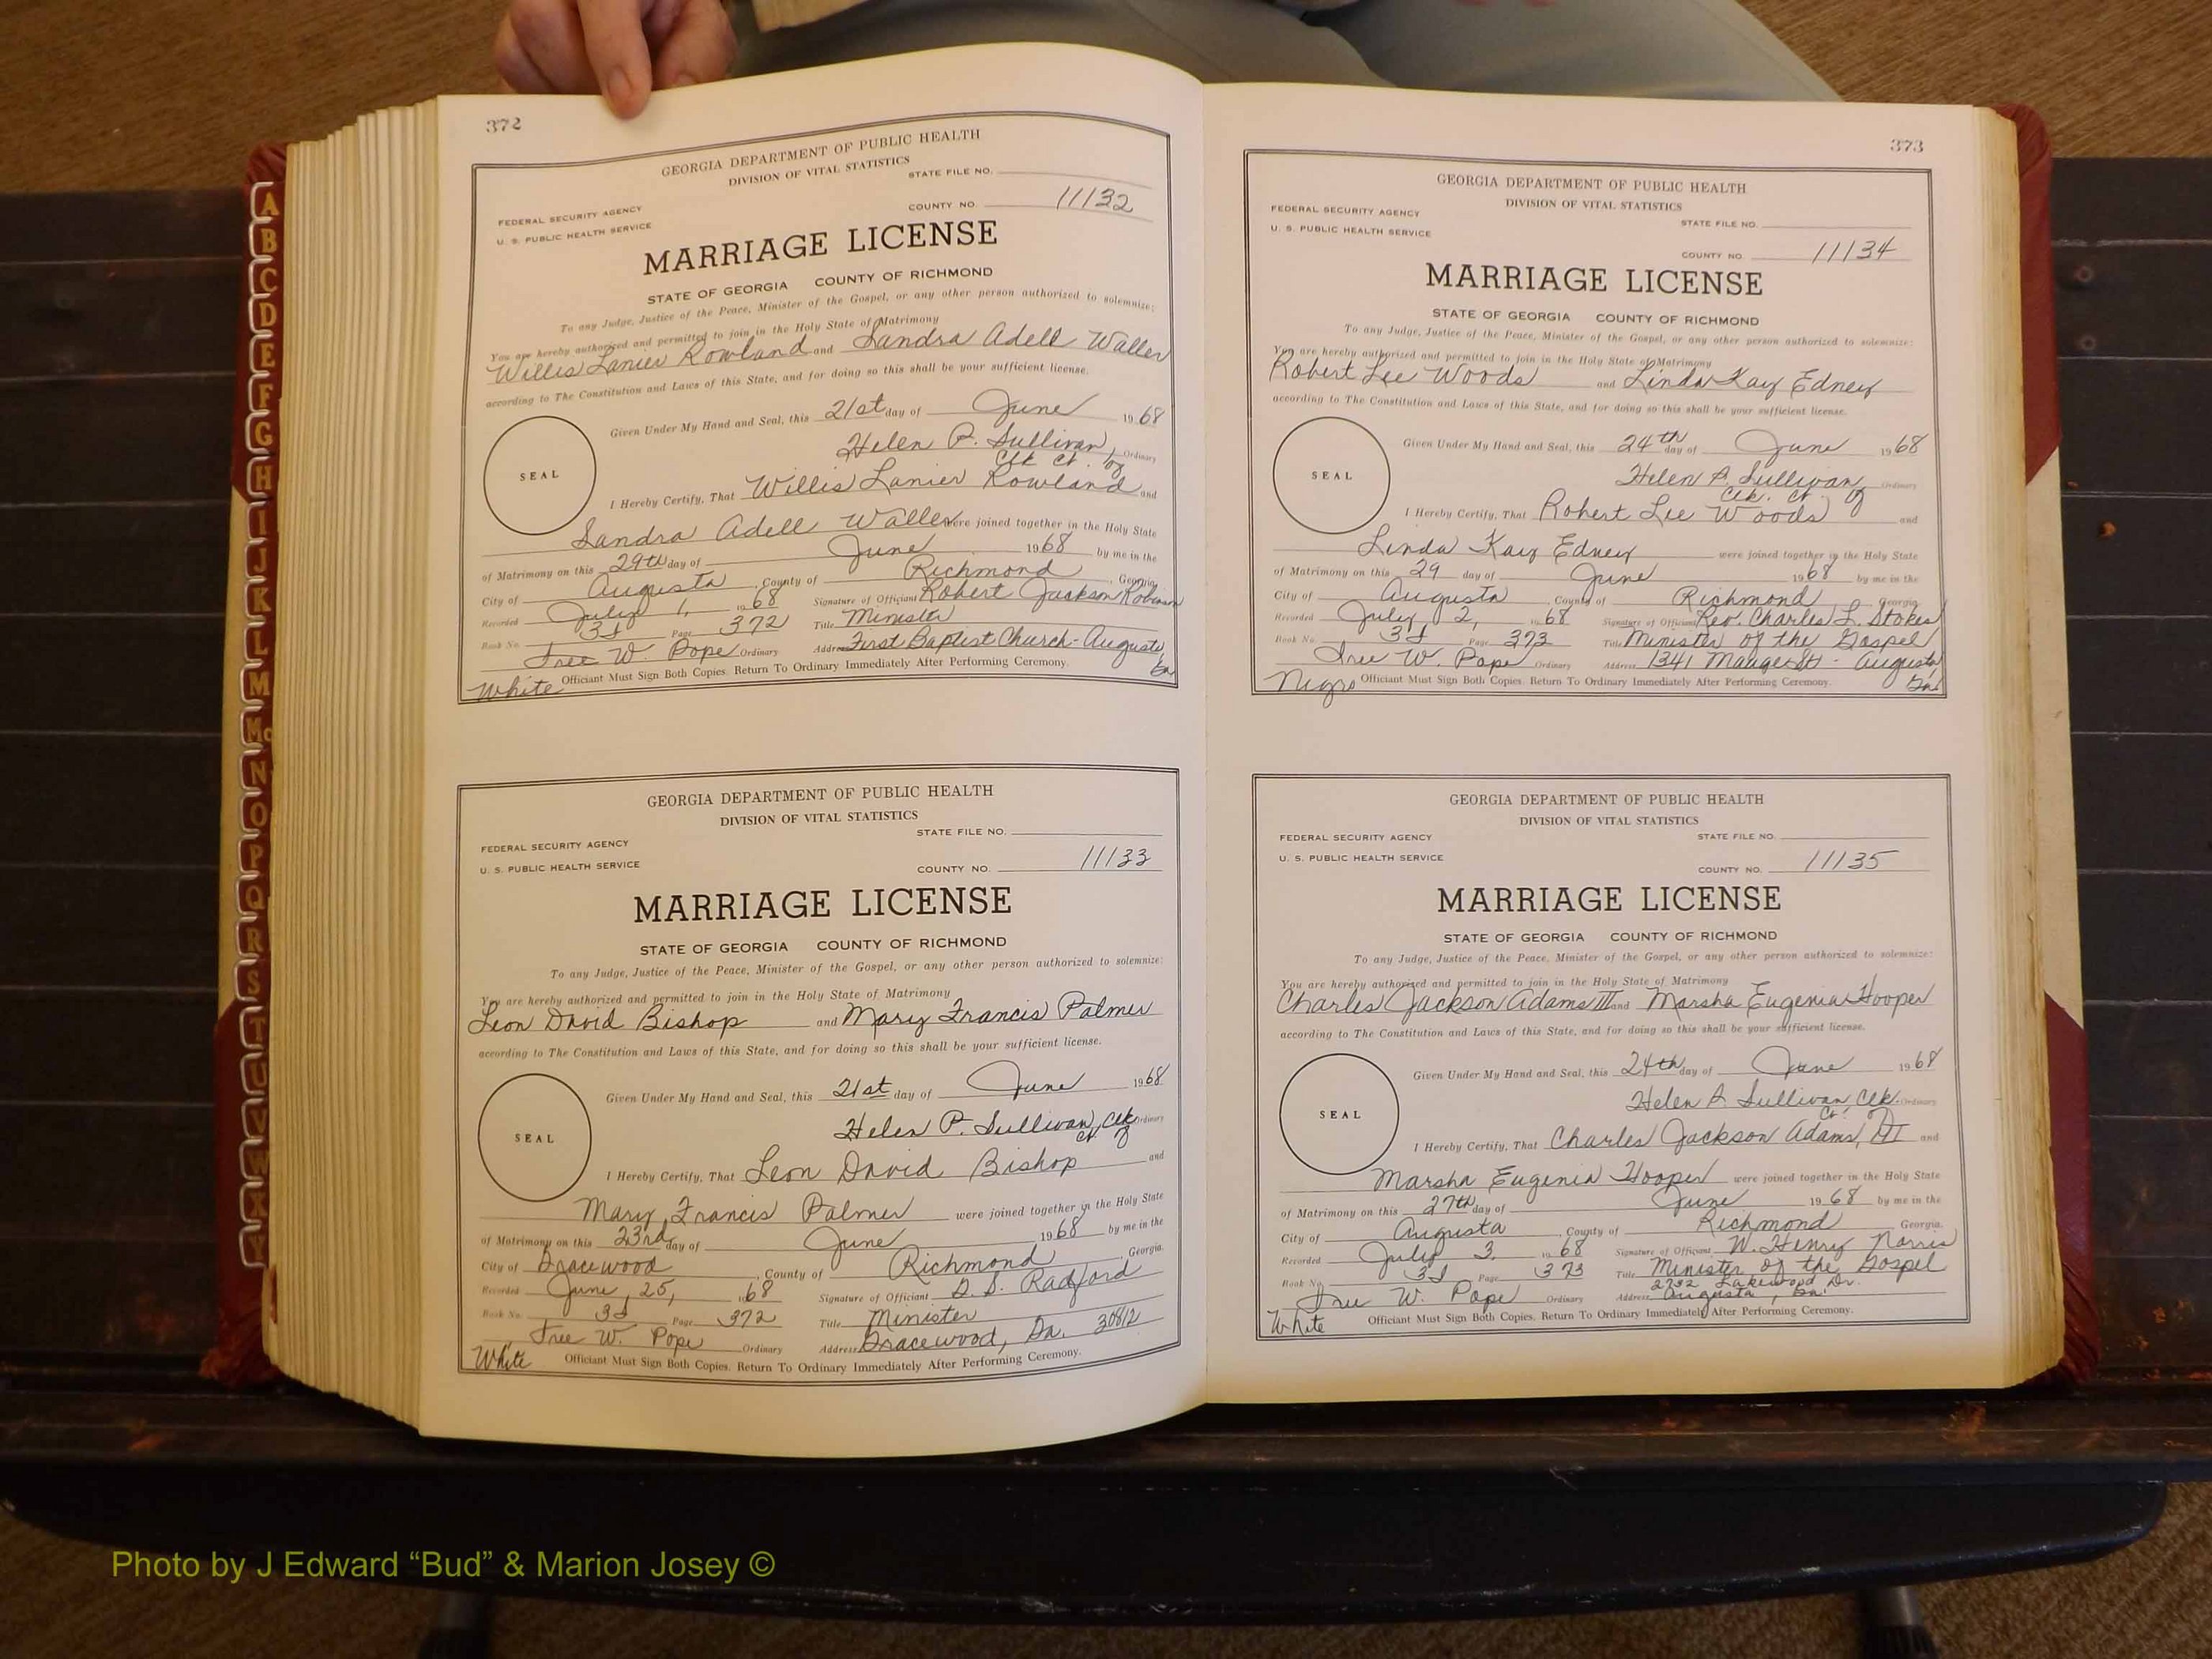 372
GEORGIA DEPARTMENT OF PUBLIC HEALTH
DIVISION OF VITAL STATISTICS
STATE FILE NO.
FEDERAL SECURITY AGENCY
COUNTY NO. 11132
U. S. PUBLIC HEALTH SERVICE
MARRIAGE LICENSE
STATE OF GEORGIA COUNTY OF RICHMOND
To any Judge, Justice of the Peace, Minister of the Gospel, or any other person authorized to solemnize:
You are hereby authorized and permitted to join in the Holy State of Matrimony
Willis Lanier Rowland and Sandra Adell Waller
according to The Constitution and Laws of this State, and for doing so this shall be your sufficient license.
Given Under My Hand and Seal, this 21st day of June 1968
Helen P. Sullivan, Ordinary
Clk Ct. of
SEAL
I Hereby Certify, That Willis Lanier Rowland and
Sandra Adell Waller were joined together in the Holy State
of Matrimony on this 29th day of June 1968 by me in the
City of Augusta, County of Richmond, Georgia.
Recorded July 1, 1968 Signature of Officiant Robert Jackson Robinson
Book No. 3J Page 372 Title Minister
Tree W. Pope Ordinary Address First Baptist Church - Augusta, Ga
White Officiant Must Sign Both Copies. Return To Ordinary Immediately After Performing Ceremony.
GEORGIA DEPARTMENT OF PUBLIC HEALTH
DIVISION OF VITAL STATISTICS
STATE FILE NO.
FEDERAL SECURITY AGENCY
U. S. PUBLIC HEALTH SERVICE
COUNTY NO. 11133
MARRIAGE LICENSE
STATE OF GEORGIA COUNTY OF RICHMOND
To any Judge, Justice of the Peace, Minister of the Gospel, or any other person authorized to solemnize:
You are hereby authorized and permitted to join in the Holy State of Matrimony
Leon David Bishop and Mary Francis Palmer
according to The Constitution and Laws of this State, and for doing so this shall be your sufficient license.
Given Under My Hand and Seal, this 21st day of June 1968
Helen P. Sullivan, Clk Ordinary
Ct. of
SEAL
I Hereby Certify, That Leon David Bishop and
Mary Francis Palmer were joined together in the Holy State
of Matrimony on this 23rd day of June 1968 by me in the
City of Gracewood, County of Richmond, Georgia.
Recorded June 25, 1968 Signature of Officiant D. S. Radford
Book No. 3J Page 372 Title Minister
Tree W. Pope Ordinary Address Gracewood, Ga. 30812
White Officiant Must Sign Both Copies. Return To Ordinary Immediately After Performing Ceremony.
373
GEORGIA DEPARTMENT OF PUBLIC HEALTH
DIVISION OF VITAL STATISTICS
FEDERAL SECURITY AGENCY
STATE FILE NO.
U. S. PUBLIC HEALTH SERVICE
COUNTY NO. 11134
MARRIAGE LICENSE
STATE OF GEORGIA COUNTY OF RICHMOND
To any Judge, Justice of the Peace, Minister of the Gospel, or any other person authorized to solemnize:
You are hereby authorized and permitted to join in the Holy State of Matrimony
Robert Lee Woods and Linda Kay Edney
according to The Constitution and Laws of this State, and for doing so this shall be your sufficient license.
Given Under My Hand and Seal, this 24th day of June 1968
Helen P. Sullivan, Ordinary
Clk. Ct. of
SEAL
I Hereby Certify, That Robert Lee Woods and
Linda Kay Edney were joined together in the Holy State
of Matrimony on this 29 day of June 1968 by me in the
City of Augusta, County of Richmond Georgia
Recorded July 2, 1968 Signature of Officiant Rev. Charles L. Stokes
Book No. 3J Page 373 Title Minister of the Gospel
Tree W. Pope Ordinary Address 1341 Mauge St - Augusta, Ga
Nigro Officiant Must Sign Both Copies. Return To Ordinary Immediately After Performing Ceremony.
GEORGIA DEPARTMENT OF PUBLIC HEALTH
DIVISION OF VITAL STATISTICS
FEDERAL SECURITY AGENCY STATE FILE NO.
U. S. PUBLIC HEALTH SERVICE
COUNTY NO. 11135
MARRIAGE LICENSE
STATE OF GEORGIA COUNTY OF RICHMOND
To any Judge, Justice of the Peace, Minister of the Gospel, or any other person authorized to solemnize:
You are hereby authorized and permitted to join in the Holy State of Matrimony
Charles Jackson Adams III and Marsha Eugenia Hooper
according to The Constitution and Laws of this State, and for doing so this shall be your sufficient license.
Given Under My Hand and Seal, this 24th day of June 1968
Helen P. Sullivan, Clk. Ordinary
Ct. of
SEAL
I Hereby Certify, That Charles Jackson Adams, III and
Marsha Eugenia Hooper were joined together in the Holy State
of Matrimony on this 27th day of June 1968 by me in the
City of Augusta, County of Richmond Georgia.
Recorded July 3, 1968 Signature of Officiant W. Henry Norris
Book No. 3J Page 373 Title Minister of the Gospel
Tree W. Pope Ordinary Address 2732 Lakewood Dr. Augusta, Ga.
White Officiant Must Sign Both Copies. Return To Ordinary Immediately After Performing Ceremony.
A
B
C
D
E
F
G
H
I
J
K
L
M
Mc
N
O
P
Q
R
S
T
U
V
W
X
Y
Photo by J Edward “Bud” & Marion Josey ©